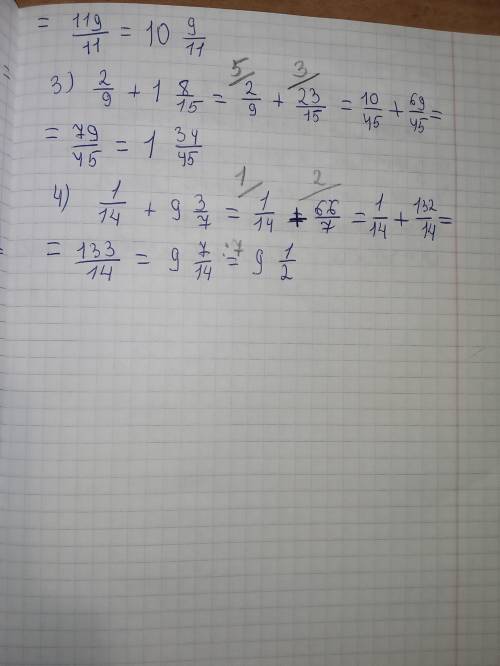 = 119/11 = 10 9/11
5/ 3/
3) 2/9 + 1 8/15 = 2/9 + 23/15 = 10/45 + 69/45 =
= 79/45 = 1 34/45
1/ 2/
4) 1/14 + 9 3/7 = 1/14 + 66/7 = 1/14 + 132/14 =
= 133/14 = 9 7/14 :7 = 9 1/2